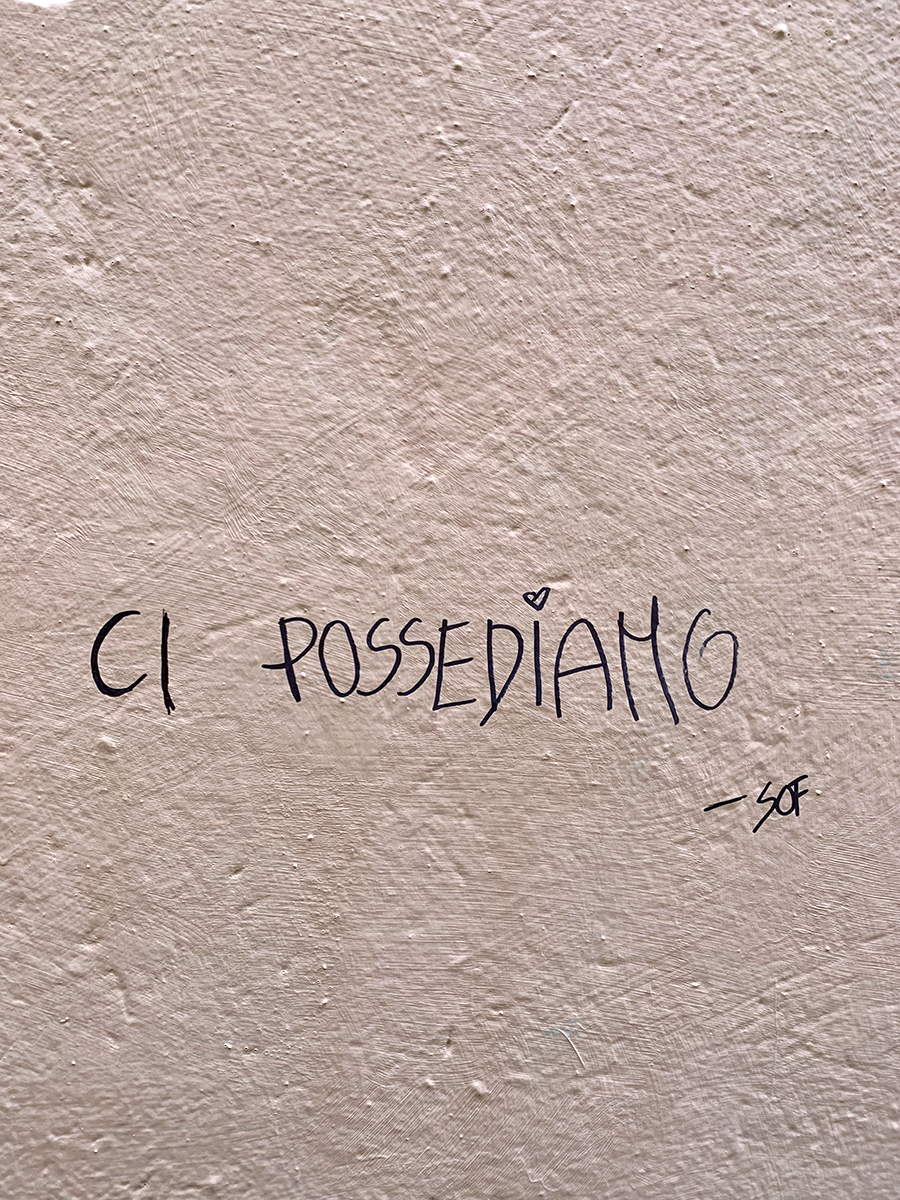 CI POSSEDiAMO
- SOF